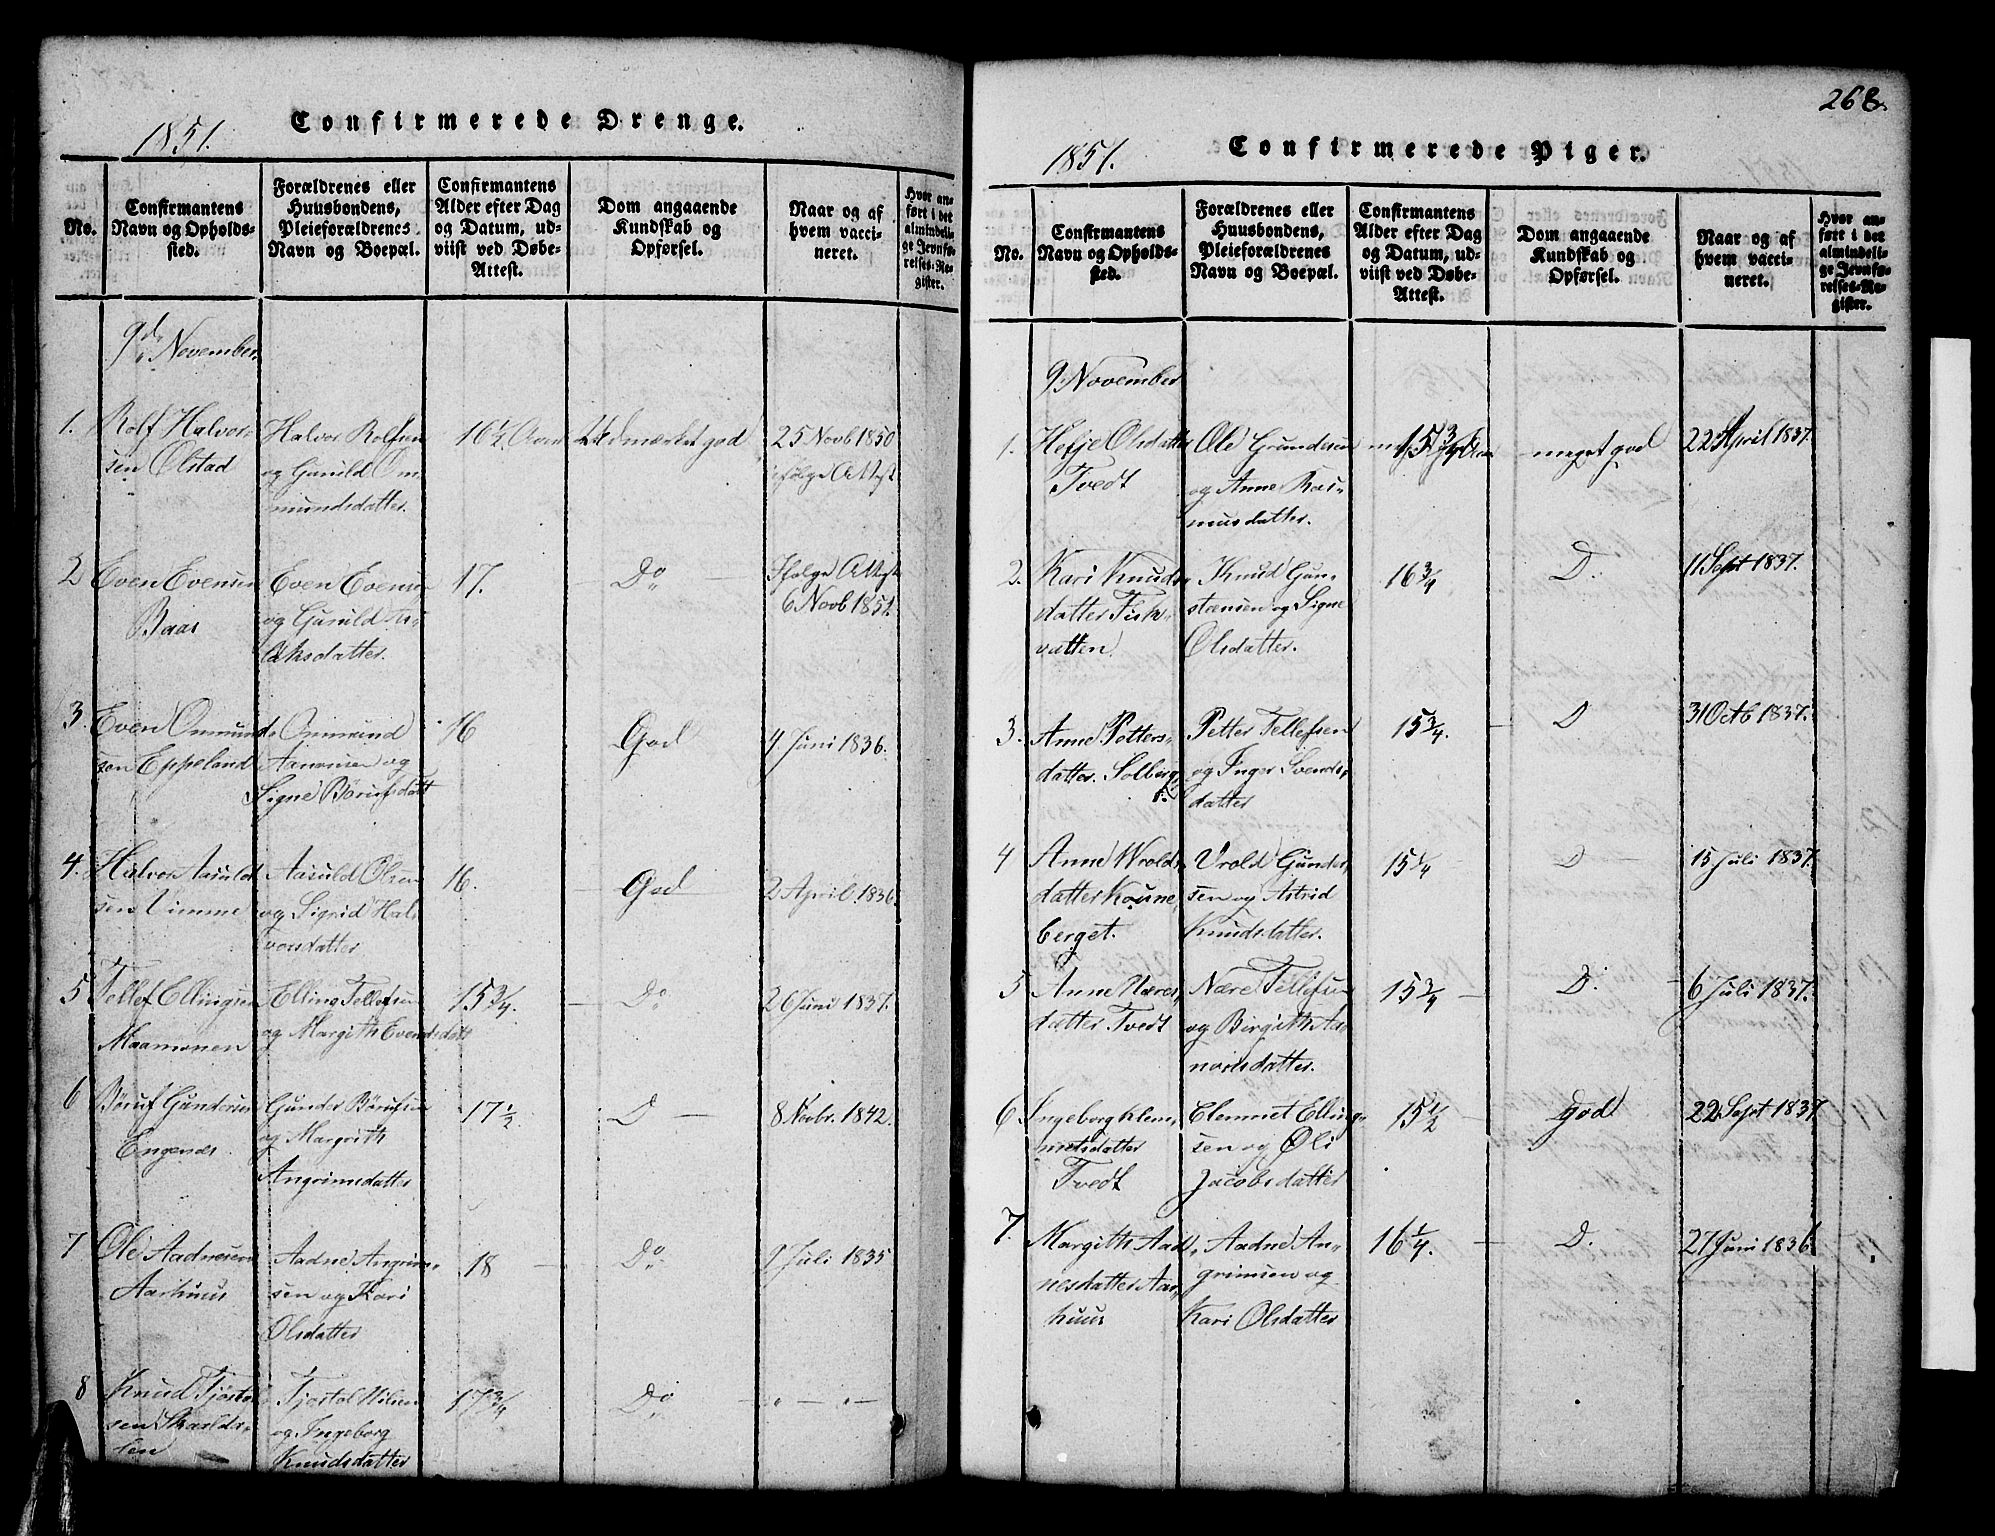 Confirmerede Drenge.
1851.
No.
Confirmantens
Navn og Opholds-
sted.
Forældrenes eller
Huusbondens,
Pleieforældrenes
Navn og Boepæl.
Confirmantens
Alder efter Dag
og Datum, ud-
viist ved Døbe-
Attest.
Dom angaaende
Kundskab og
Opførsel.
Naar og af
hvem vacci-
neret.
Hvor an-
ført i det
almindeli-
ge Jevnfø-
relses-Re-
gister.
9de November.
1.
Rolf Halvor-
sen Olstad
Halvor Rolfsen
og Gunild Om-
mundsdatter.
16½ Aar
Udmærket god
25 Novb 1850
ifølge Attest
2
Even Evensen
Baas
Even Evensen
og Gunild As-
laksdatter.
17.
Do
Ifølge Attest
6 Novb 1851.
3.
Even Ommund-
sen Eppeland
Ommund
og
Signe Børufsdatt
16
God
4 Juni 1836.
4.
Halvor Aasuld
sen Vimme
Aasuld Olsen
og Sigrid Hal
vorsdatter
16.
God
2 April. 1836.
5
Tellef Ellingsen
Maamonen
Elling Tellefsen
og Margith Evendsdatt
15¾.
Do
26 Juni 1837.
6
Børuf Gundersen
Engenes
Gunder Børufsen
og Margrith
Angrimsdatter
17½
D —
8 Novbr. 1842.
7
Ole Aadnesen
Aarhuus
Aadne Angrim-
sen og Kari
Olsdatter
18
Do
9 Juli 1835
8
Knud Tjøstol
sen
len
Tjøstol Nilsen
og Ingeborg
Knudsdatter
17¾
Do
" — " —
268.
Confirmerede Piger.
1851.
No.
Confirmantens
Navn og Opholds-
sted.
Forældrenes eller
Huusbondens,
Pleieforældrenes
Navn og Boepæl.
Confirmantens
Alder efter Dag
og Datum, ud-
viist ved Døbe-
Attest.
Dom angaaende
Kundskab og
Opførsel.
Naar og af
hvem vacci-
neret.
Hvor an-
ført i det
almindeli-
ge Jevnfø-
relses-Re-
gister.
9 November
1.
Hefje Olsdatter
Tvedt
Ole Gundersen
og Anne Ras-
musdatter.
15¾ Aar
meget god
22 April 1837.
2.
Kari Knuds-
datter Fisk-
vatten.
Knud Gun-
stensen og Signe
Olsdatter.
16¾
D.
11 Sept 1837.
3.
Anne Petters-
datter. Solberg
Petter Tellefsen
og Inger Svends-
datter
15¾.
D
31 Octb 1837.
4
Anne Wrolds-
datter Koune
berget.
Vrold Gunder-
sen og Astrid
Knudsdatter.
15¼
D
15 Juli 1837.
5
Anne Næres-
datter Tvedt
Nære Tellefsen
og Birgith Aa-
norsdatter.
15¾
D.
6 Juli 1837.
6.
Ingeborg Klem-
metsdatter
Tvedt
Clemmet Elling-
sen og Oli
Jacobsdatter
15½
god
22 Sept 1837
7.
Margith Aad-
nesdatter Aar-
huus
Aadne An-
grimsen og
Kari Olsdatter
16¼.
D.
27 Juni 1836.